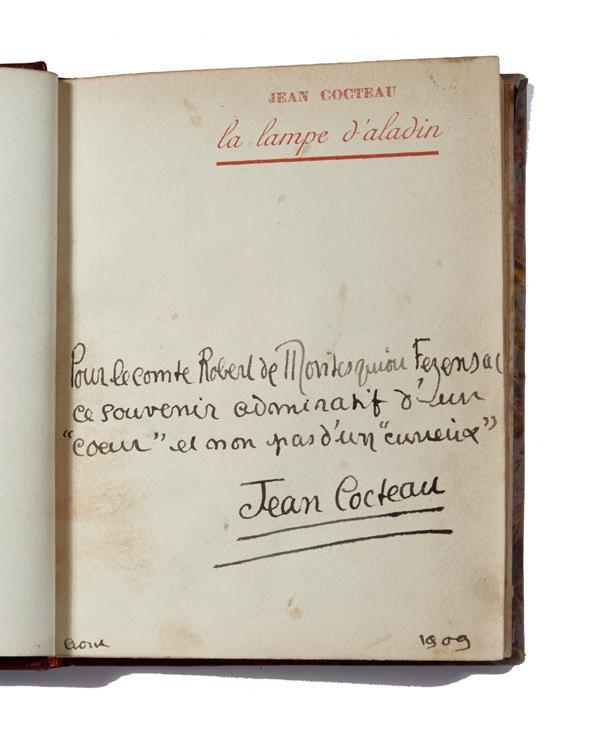 JEAN COCTEAU
la lampe d'aladin
Pour le comte Robert de Montesquiou Fezensac
ce souvenir admiratif d'un
"coeur" et non pas d'un "curieux"
Jean Cocteau
Aout 1909